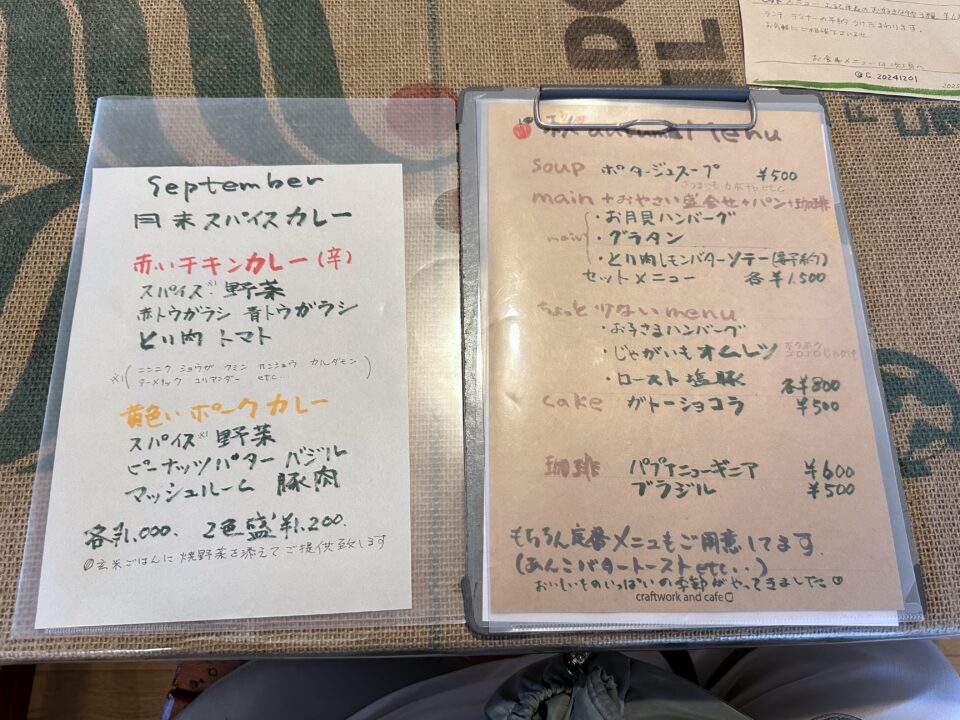 September
月末スパイスカレー
赤いチキンカレー(辛)
スパイス※1 野菜
赤トウガラシ 青トウガラシ
とり肉 トマト
※1(ニンニク ショウガ クミン コショウ カルダモン
ターメリック コリアンダー etc…)
黄色いポークカレー
スパイス※1 野菜
ピーナッツバター バジル
マッシュルーム 豚肉
各¥1,000. 2色盛¥1,200.
玄米ごはんに焼野菜を添えてご提供致します
autumn Menu
soup ポタージュスープ ¥500
さつまいも カボチャ etc…
main+おやさい盛合せ+パン+珈琲
main
・お月見ハンバーグ
・グラタン
・とり肉レモンバターソテー(要予約)
セットメニュー 各¥1.500
ちょっと少ない menu
・お子さまハンバーグ
・じゃがいもオムレツ
ホクホク
ゴロゴロじゃが
・ロースト塩豚
各¥800
cake ガトーショコラ ¥500
珈琲 パプアニューギニア ¥600
ブラジル ¥500
もちろん定番メニュもご用意してます.
(あんこバタートースト etc..)
おいしいものいっぱいの季節がやってきました♡
craftwork and cafe
ランチ ディナーの予約 うけたまわります.
お気軽にご相談下さいませ
20241201